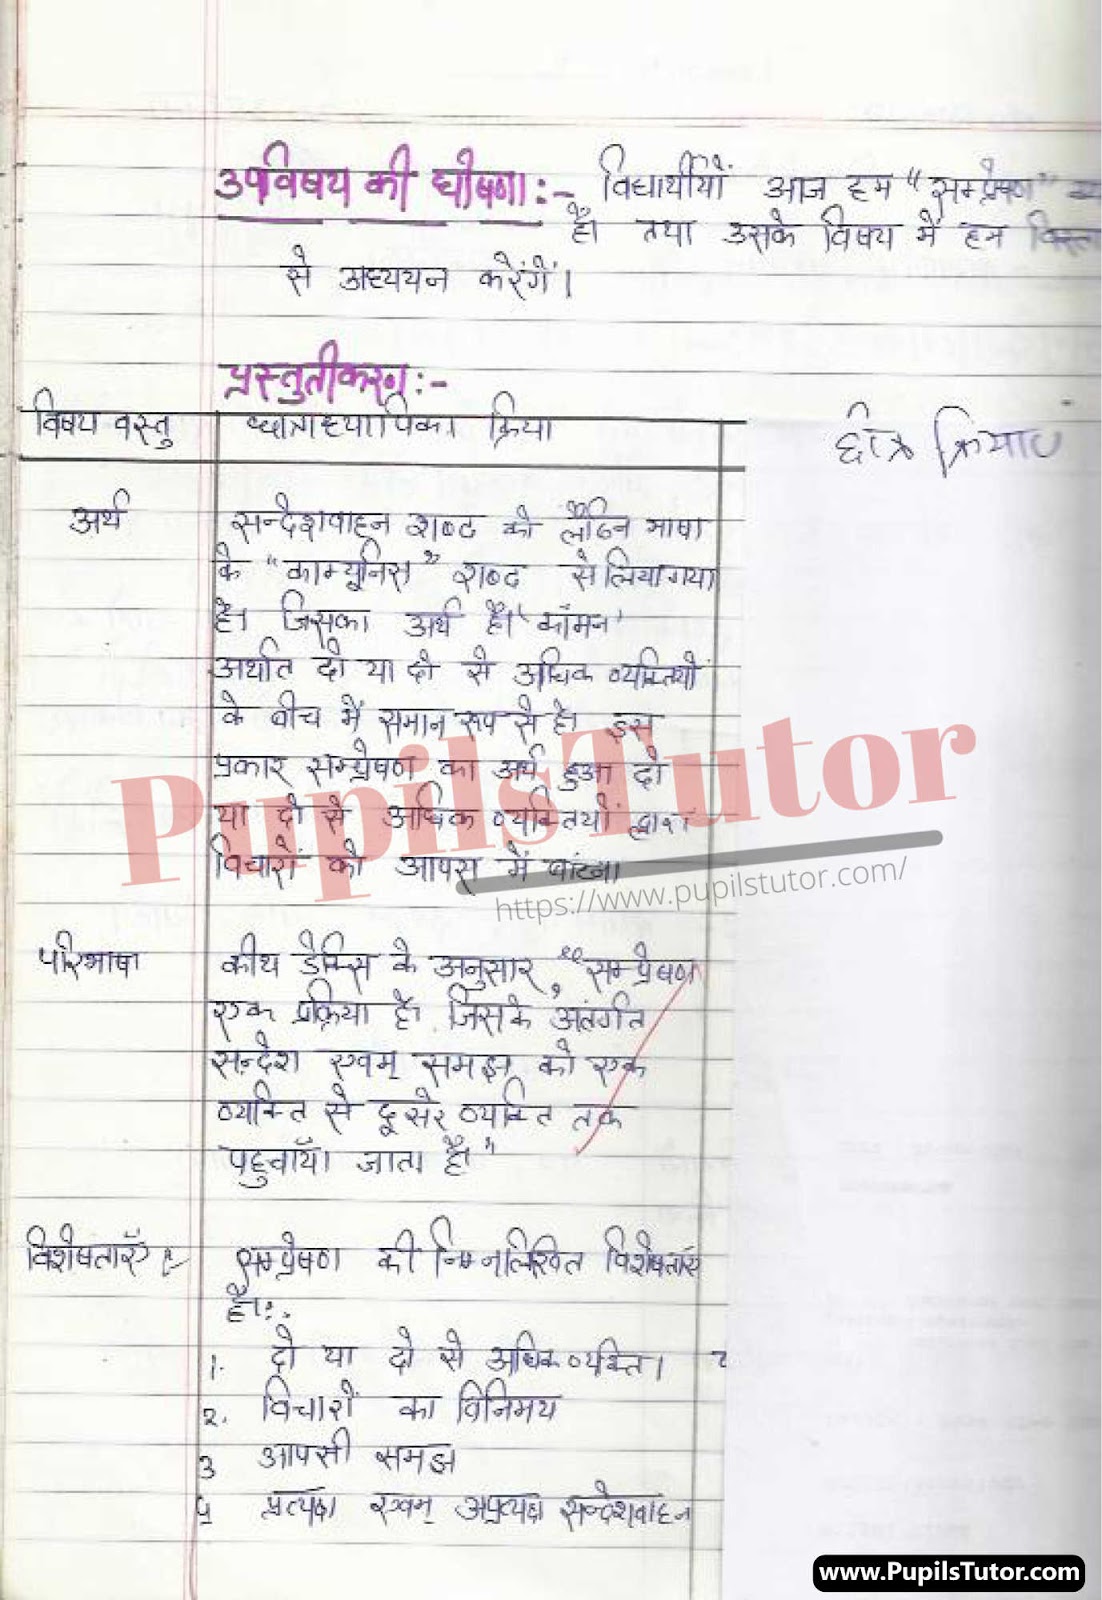 उपविषय की घोषणा:- विधार्थीयों आज हम "सम्प्रेषण"
है। तथा उसके विषय में हम
से अध्ययन करेंगें।
प्रस्तुतीकरण:-
विषय वस्तु छात्राध्यापिका क्रिया छात्र क्रियाएं
अर्थ सन्देशवाहन शब्द को लैटिन भाषा
के "काम्यूनिस" शब्द से लिया गया
है। जिसका अर्थ है। 'कॉमन'
अर्थात दो या दो से अधिक व्यक्तियों
के बीच में समान रूप से है। इस
प्रकार सम्प्रेषण का अर्थ हुआ दो
या दो से अधिक व्यक्तियों द्वारा
विचारों को आपस में बांटना
PupilsTutor
https://www.pupilstutor.com/
परिभाषा कीथ डेविस के अनुसार, "सम्प्रेषण
एक प्रक्रिया है। जिसके अंतर्गत
सन्देश एवम् समझ को एक
व्यक्ति से दूसरे व्यक्ति तक
पहुचाँया जाता है।"
विशेषताएँ सम्प्रेषण की निम्नलिखित विशेषताएँ
है।:.
1. दो या दो से अधिक व्यक्ति।
2. विचारों का विनिमय
3 आपसी समझ
4 प्रत्यक्ष एवम् अप्रत्यक्ष सन्देशवाहन
www.PupilsTutor.com